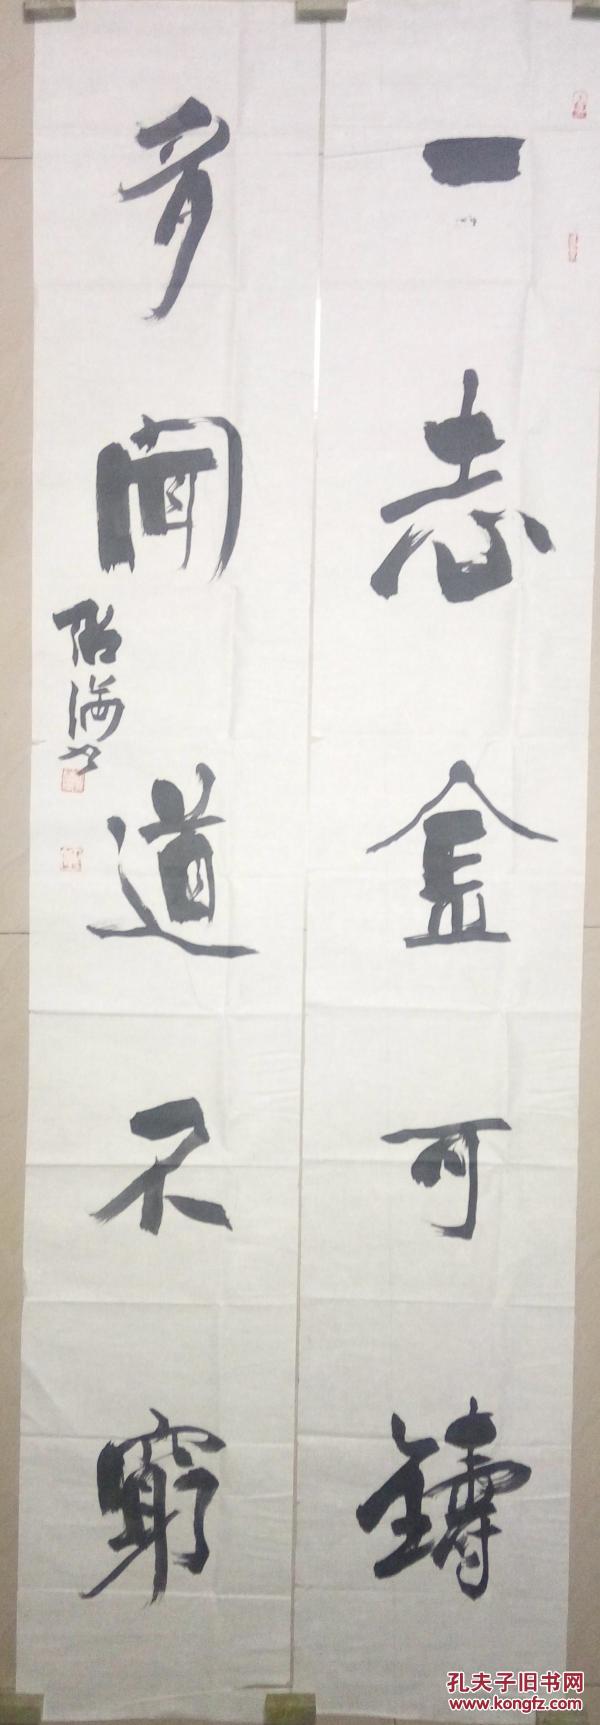 一志金可鑄
多聞道不窮
孔夫子旧书网
www.kongfz.com